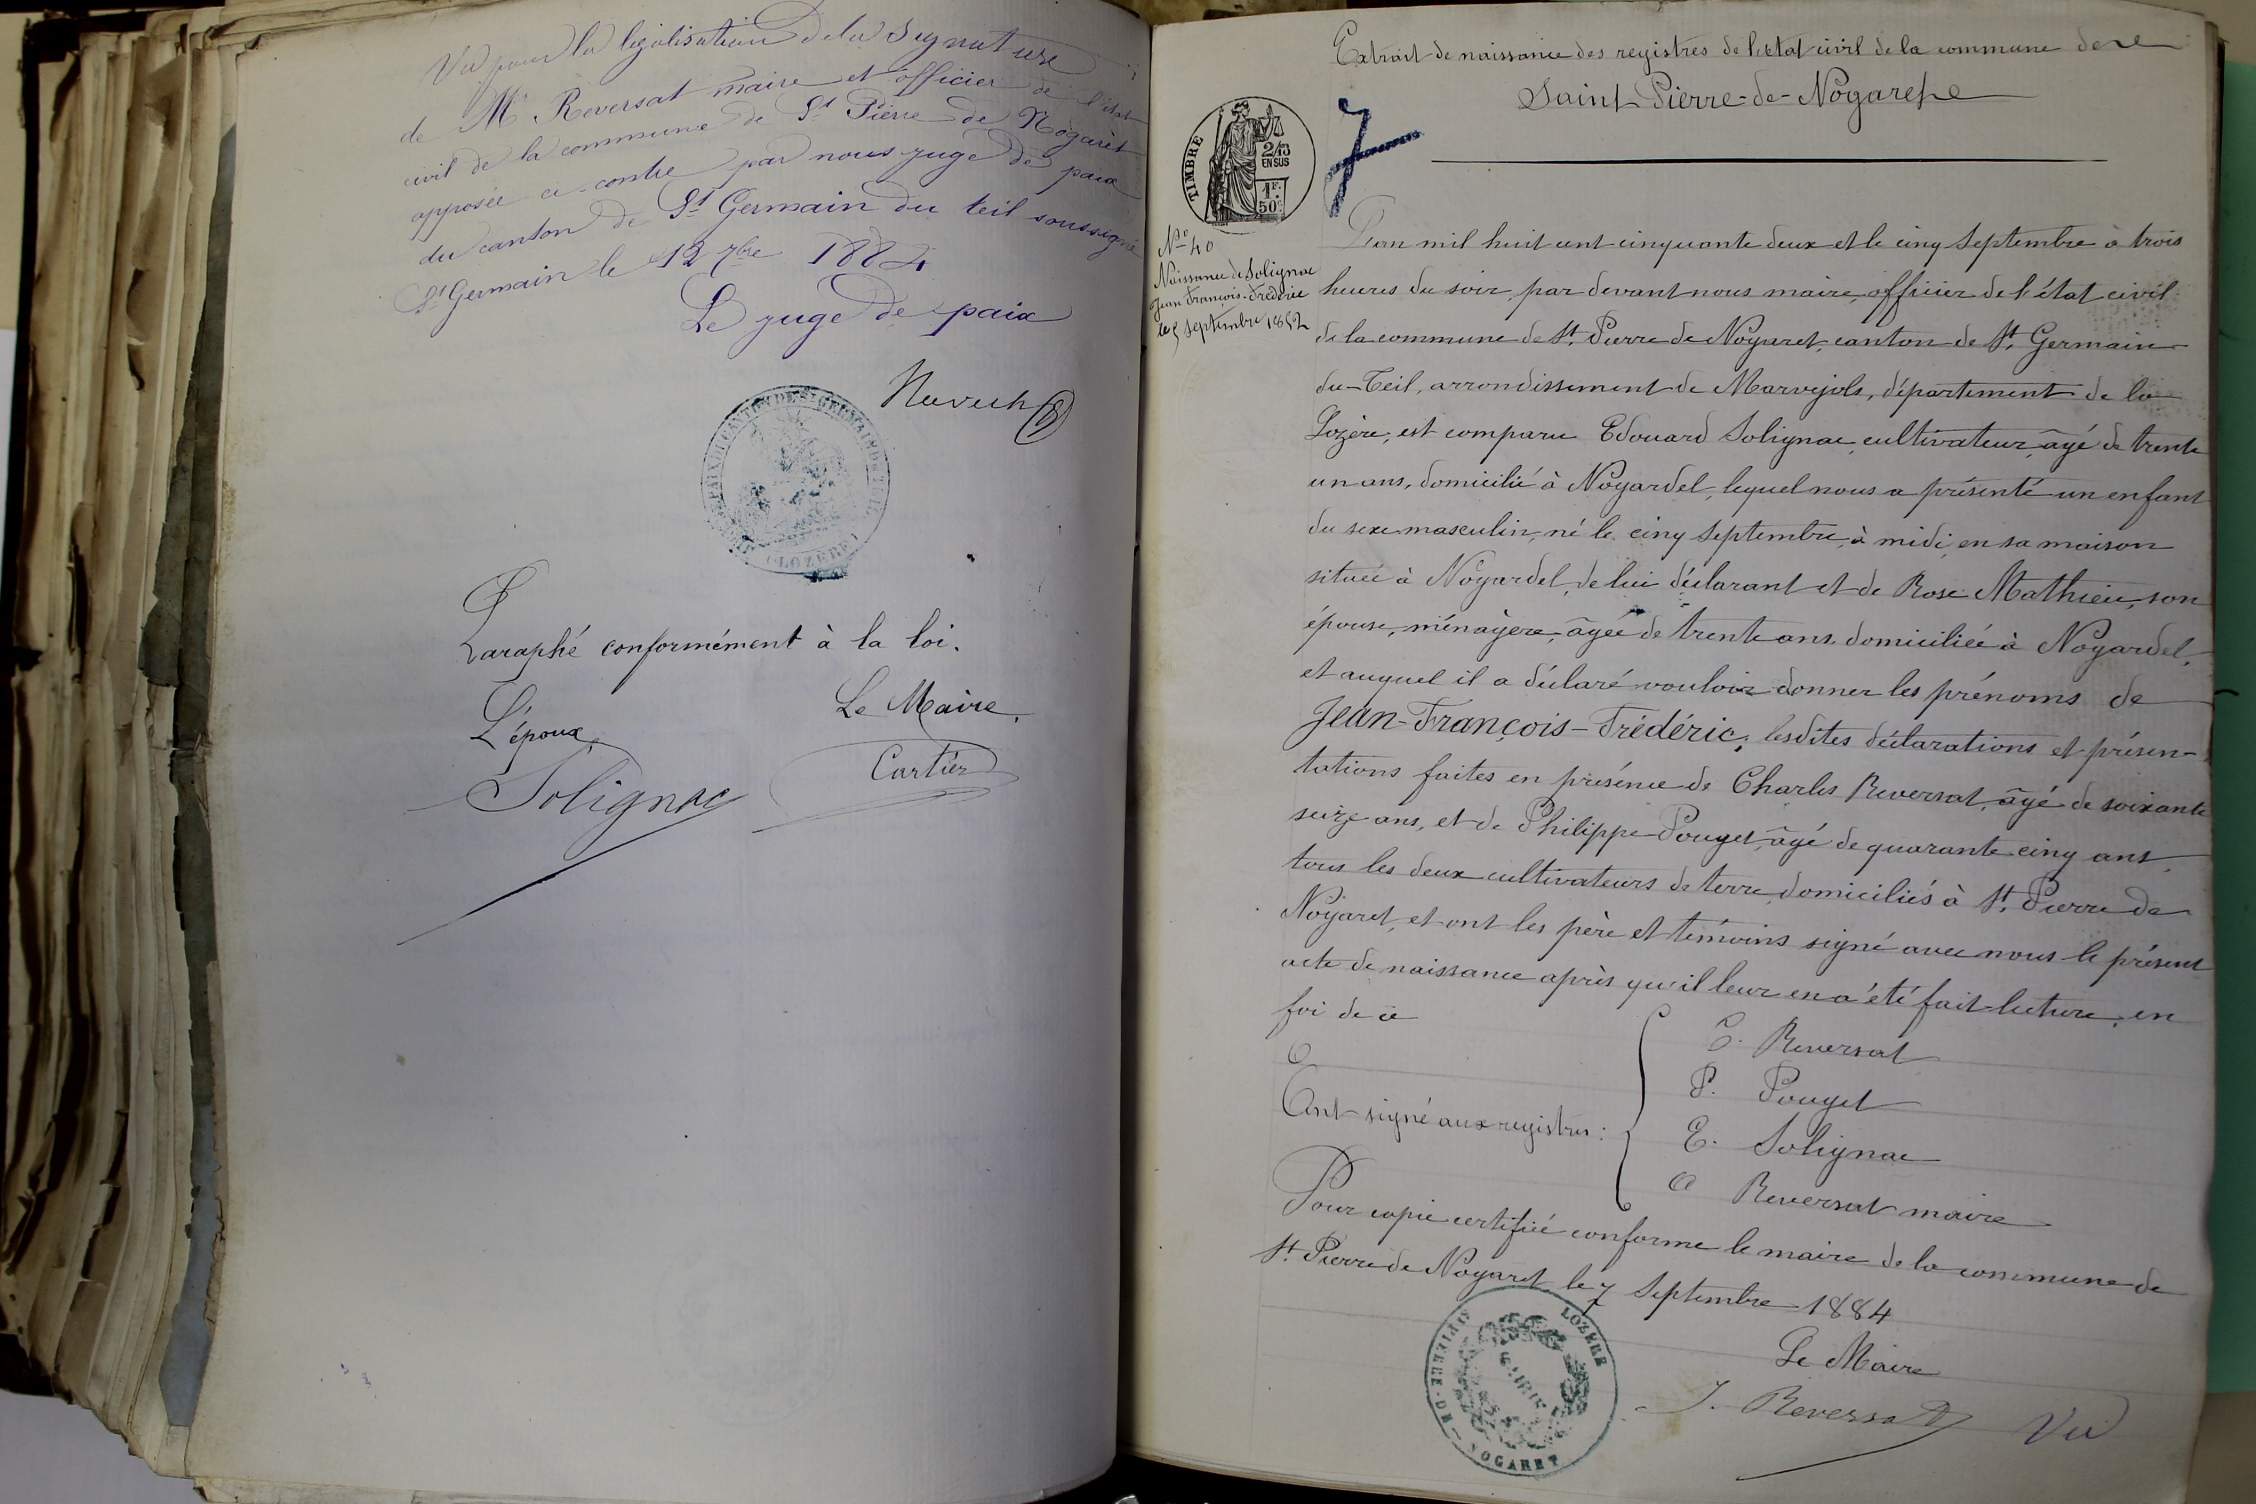 Vu pour la légalisation de la signature
de Mr Reversat maire et officier de l'état
civil de la commune de St Pierre de Nogaret
apposée ci-contre par nous juge de paix
du canton de St Germain du teil soussigné
St Germain le 12 7bre 1884
Le juge de paix
LOZÈRE
Paraphé conformément à la loi.
L'époux, Le Maire,
Solignac Cartier
Extrait de naissance des registres de l'état civil de la commune de
Saint Pierre-de-Nogaret
7
TIMBRE
2/10
EN SUS
1F.
50c
No 40
Naissance de Solignac
Jean François-Frédéric
le 5 septembre 1852
L'an mil huit cent cinquante deux et le cinq Septembre à trois
heures du soir, par devant nous maire, officier de l'état civil
de la commune de St. Pierre de Nogaret, canton de St. Germain
du-Teil, arrondissement de Marvejols, département de la
Lozère, est comparu Edouard Solignac, cultivateur, âgé de trente
un ans, domicilié à Nogardel, lequel nous a présenté un enfant
du sexe masculin, né le cinq Septembre, à midi, en sa maison
située à Nogardel, de lui déclarant et de Rose Mathieu, son
épouse, ménagère, âgée de trente ans domiciliée à Nogardel,
et auquel il a déclaré vouloir donner les prénoms de
Jean-François-Frédéric, lesdites déclarations et présen-
tations faites en présence de Charles Reversat, âgé de soixante
seize ans, et de Philippe Pouget, âgé de quarante cinq ans,
tous les deux cultivateurs de terre, domiciliés à St. Pierre de
Nogaret, et ont les père et témoins signé avec nous le présent
acte de naissance après qu'il leur en a été fait lecture, en
foi de ce
Ont signé aux registres :
C. Reversat
P. Pouget
E. Solignac
A Reversat maire
Pour copie certifiée conforme le maire de la commune de
St. Pierre de Nogaret le 7 Septembre 1884
Le Maire
J. Reversat Vu
ST PIERRE-DE-NOGARET LOZÈRE
MAIRIE